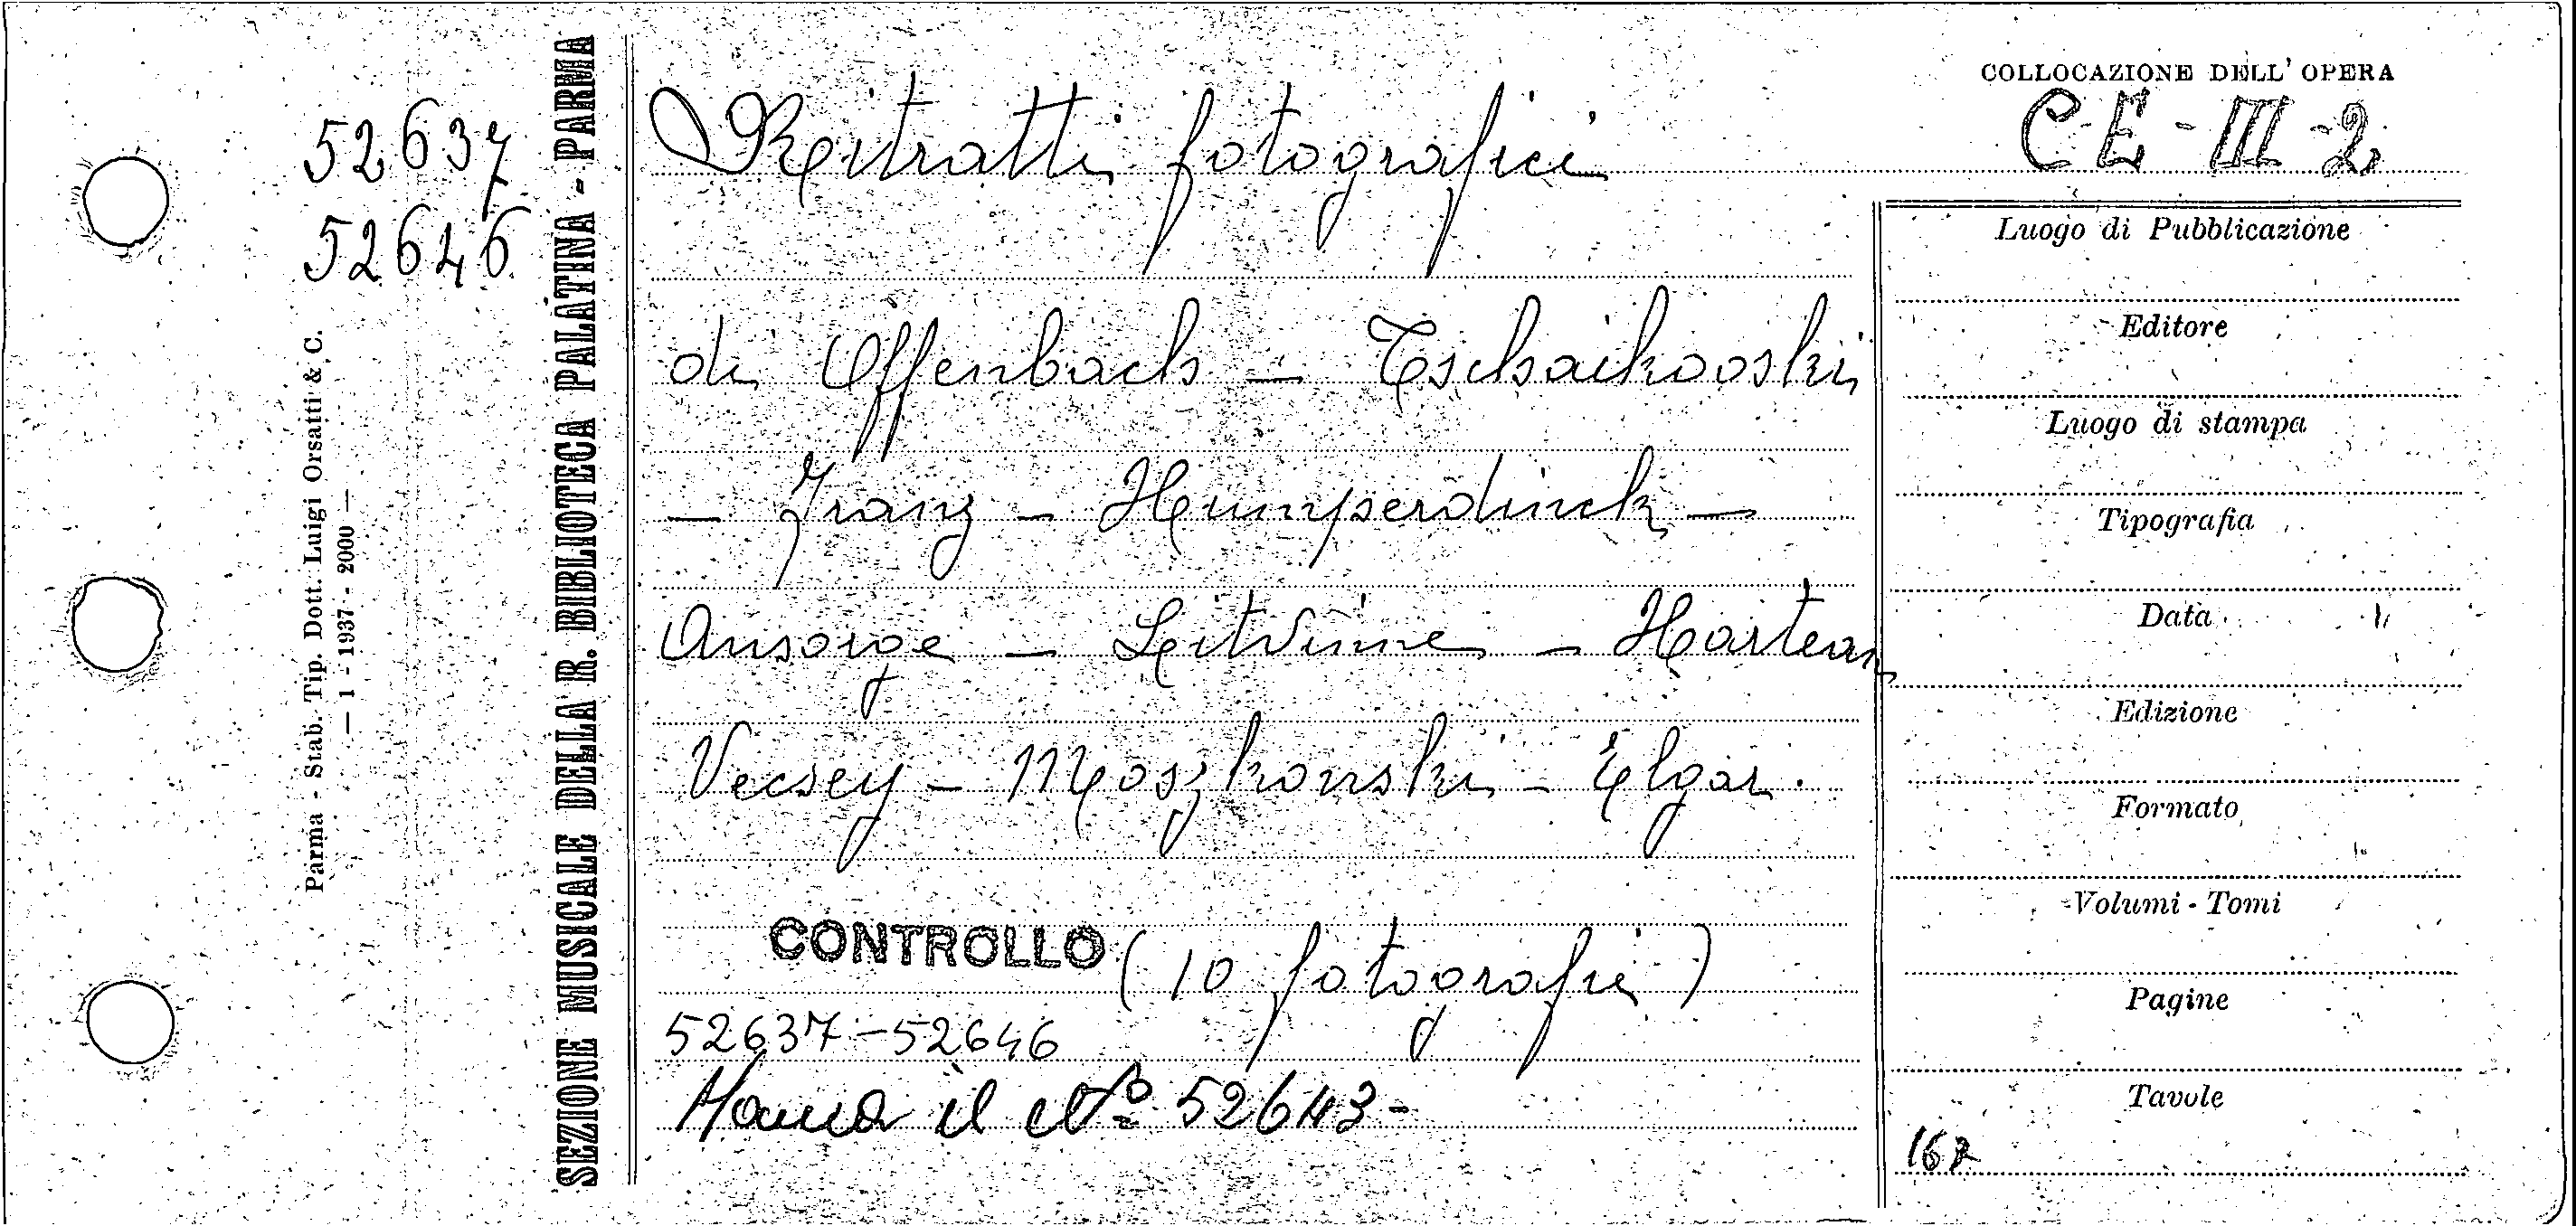 52637
52646
Parma - Stab. Tip. Dott. Luigi Orsatti & C.
— 1 - 1937 - 2000 —
SEZIONE MUSICALE DELLA R. BIBLIOTECA PALATINA - PARMA
Ritratti fotografici
di Offenbach – Tschaikovoski
– Franz – Humperdinck –
Ansorge – Litvinne – Marteau
Vecsey – Moszkowski – Elgar.
CONTROLLO (10 fotografie)
52637-52646
Manca il N° 52643-
COLLOCAZIONE DELL'OPERA
CE-III-2
Luogo di Pubblicazione
Editore
Luogo di stampa
Tipografia
Data
Edizione
Formato
Volumi - Tomi
Pagine
Tavole
167